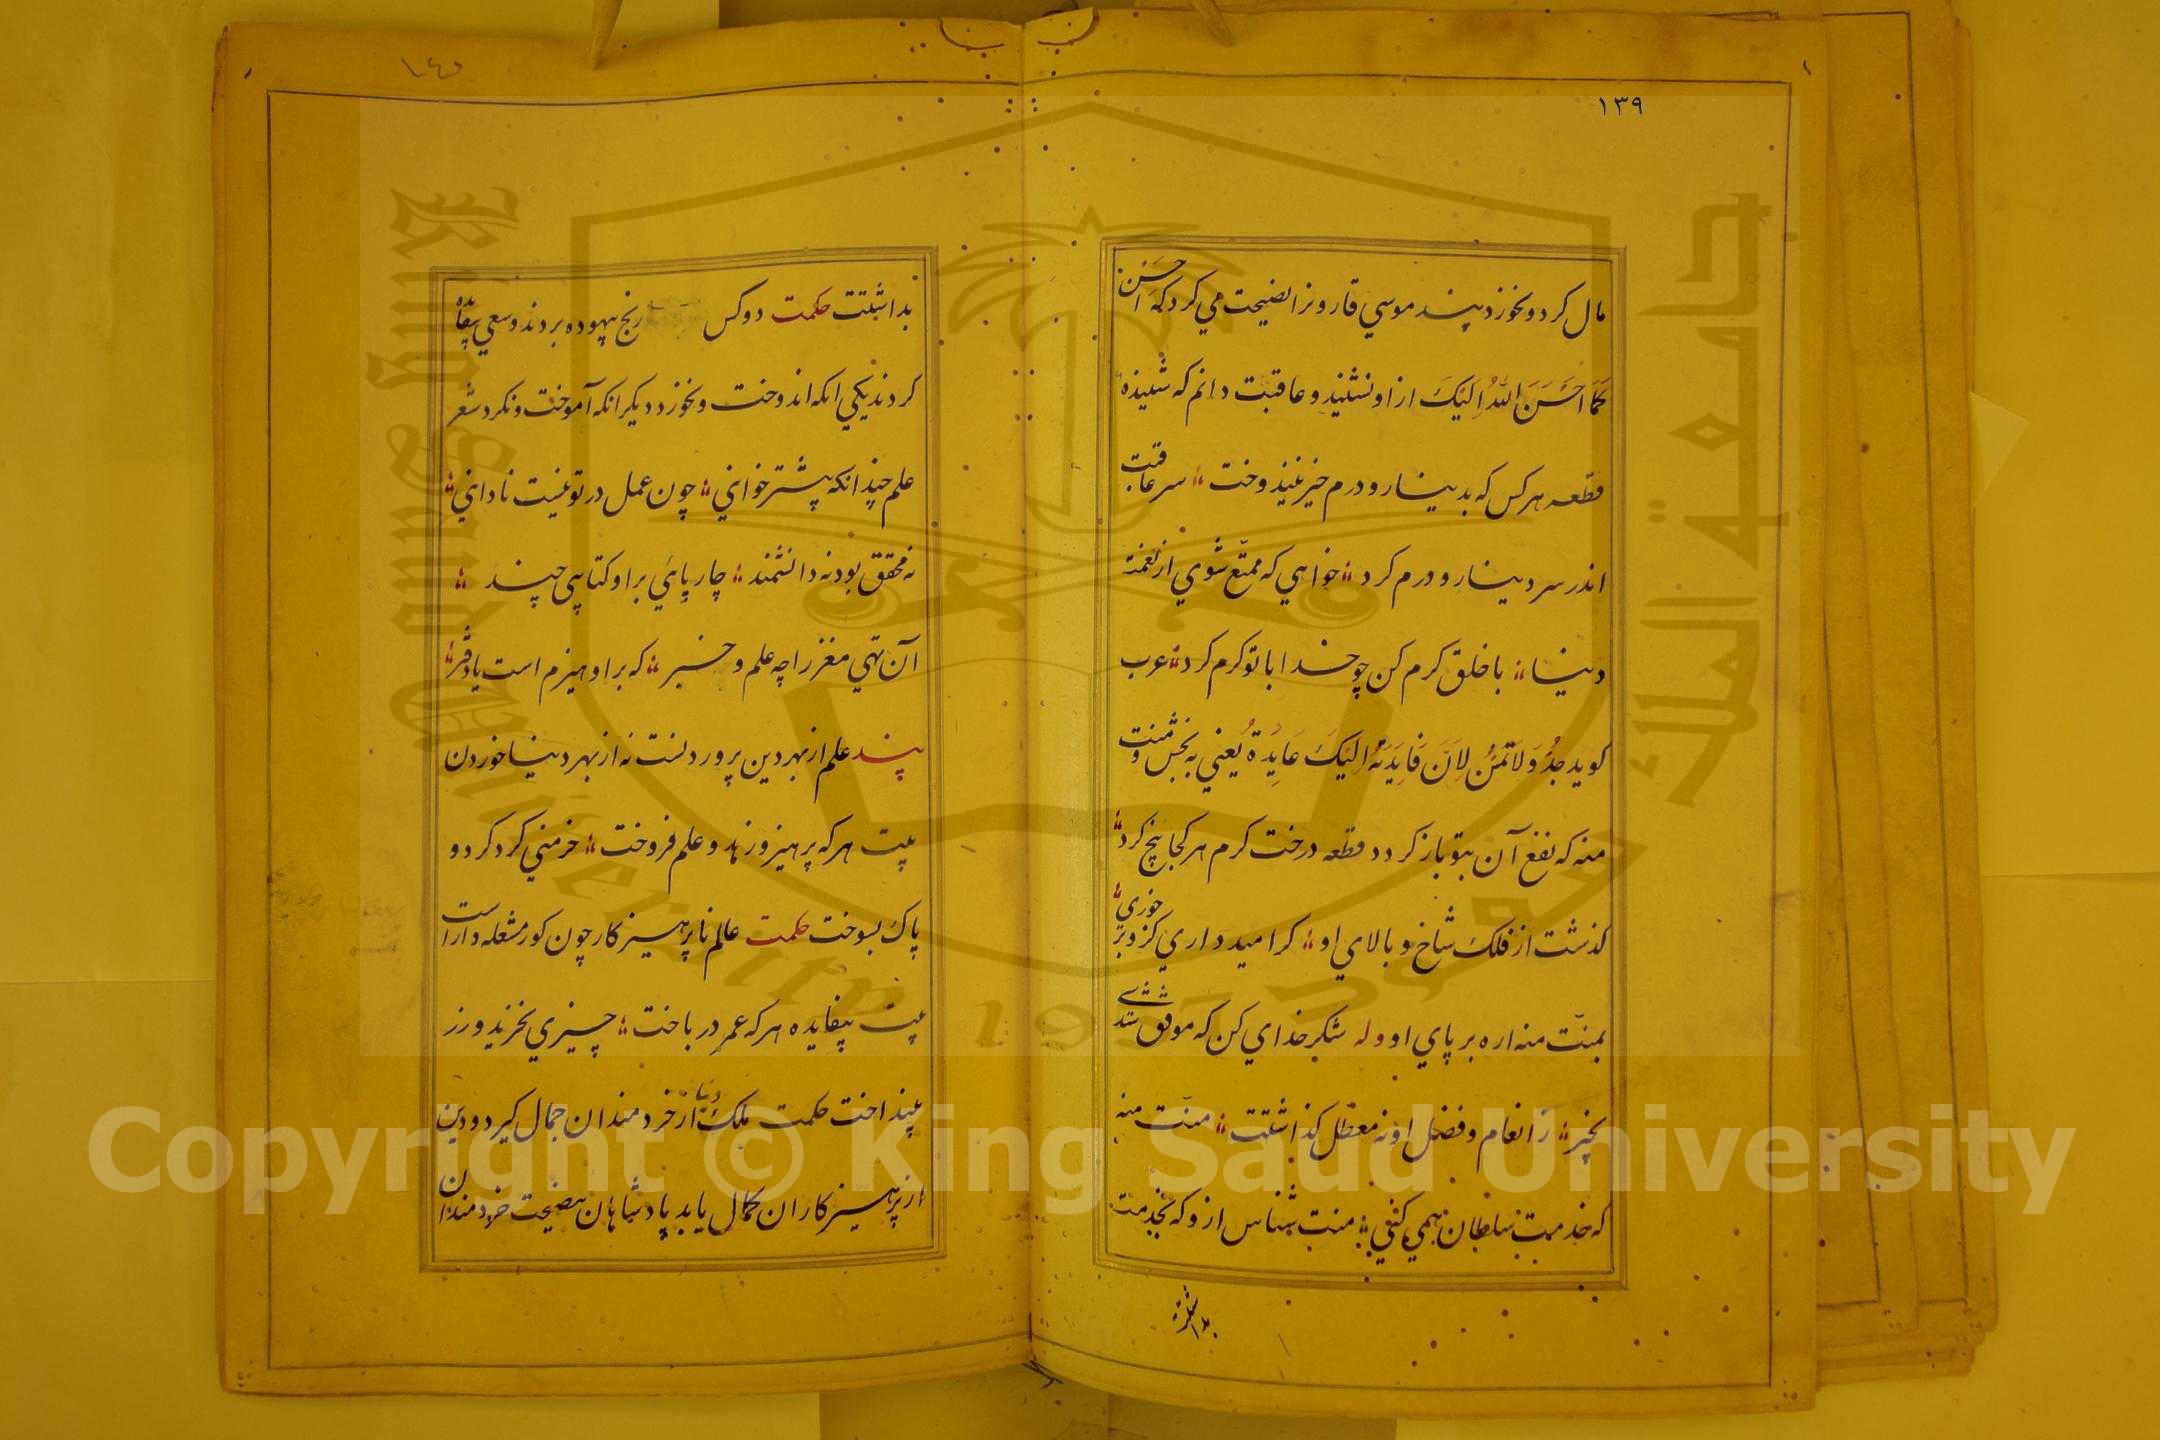 ١٣٩
مال كرد و نخورد پند موسي قارونرا نصيحت مي كرد كه احسن
كما احسن الله اليك از او نشنيد و عاقبت دانم كه شنيده
قطعه هر كس كه بدينار و درم خير نيندوخت سر عاقبت
اندر سر دينار و درم كرد خواهي كه ممتع شوي از نعمت
دنيا با خلق كرم كن چو خدا با تو كرم كرد عرب
كويد جد و لا تمنن لان فايدته اليك عايدة يعني به بخش و منت
منه كه نفع آن بتو باز كردد قطعه درخت كرم هر كجا بيخ كرد
كذشت از فلك شاخ و بالاي او كر اميد داري كزو بر خوري
بمنت منه اره بر پاي او وله شكر خداي كن كه موفق شدي
بخير ز انعام و فضل او نه معطل كذاشتت منت منه
كه خدمت سلطان همي كني منت شناس ازو كه بخدمت
بداشتت
١٤٠
بداشتت حكمت دو كس رنج بيهوده بردند و سعي بيفايده
كردند يكي انكه اندوخت و نخورد ديكر انكه آموخت و نكرد شعر
علم چندانكه بيشتر خواني چون عمل در تو نيست ناداني
نه محقق بود نه دانشمند چارپائي برو كتابي چند
آن تهي مغز را چه علم و خبر كه برو هيزم است يا دفتر
پند علم از بهر دين پروردنست نه از بهر دنيا خوردن
بيت هر كه پرهيز و زهد و علم فروخت خرمني كرد كرد و
پاك بسوخت حكمت عالم ناپرهيزكار چون كور مشعله دار است
بيت بيفايده هر كه عمر در باخت چيزي نخريد و زر
بينداخت حكمت ملك دنيا از خردمندان جمال كيرد و دين
از پرهيزكاران كمال يابد پادشاهان بنصيحت خردمندان
جامعة الملك سعود
King Saud University
1957
Copyright © King Saud University